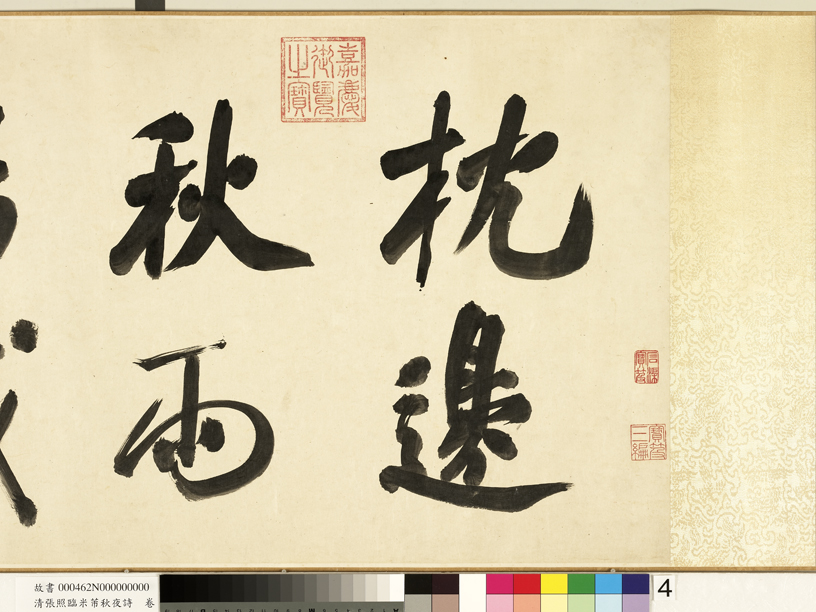 枕邊
秋雨
嘉慶
御覽
之寶
石渠
寶笈
寶笈
三編
故書 000462N000000000
清張照臨米芾秋夜詩 卷
4